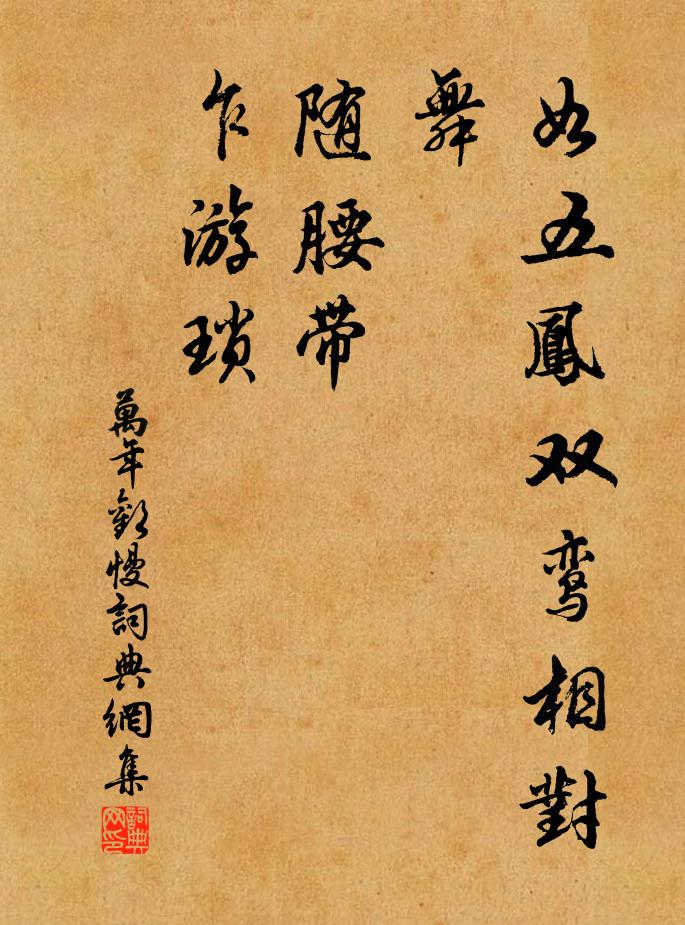 如五鳳双鸾相對
舞
随腰带
乍游瑣
萬年歡慢詞典網集
詞典网印